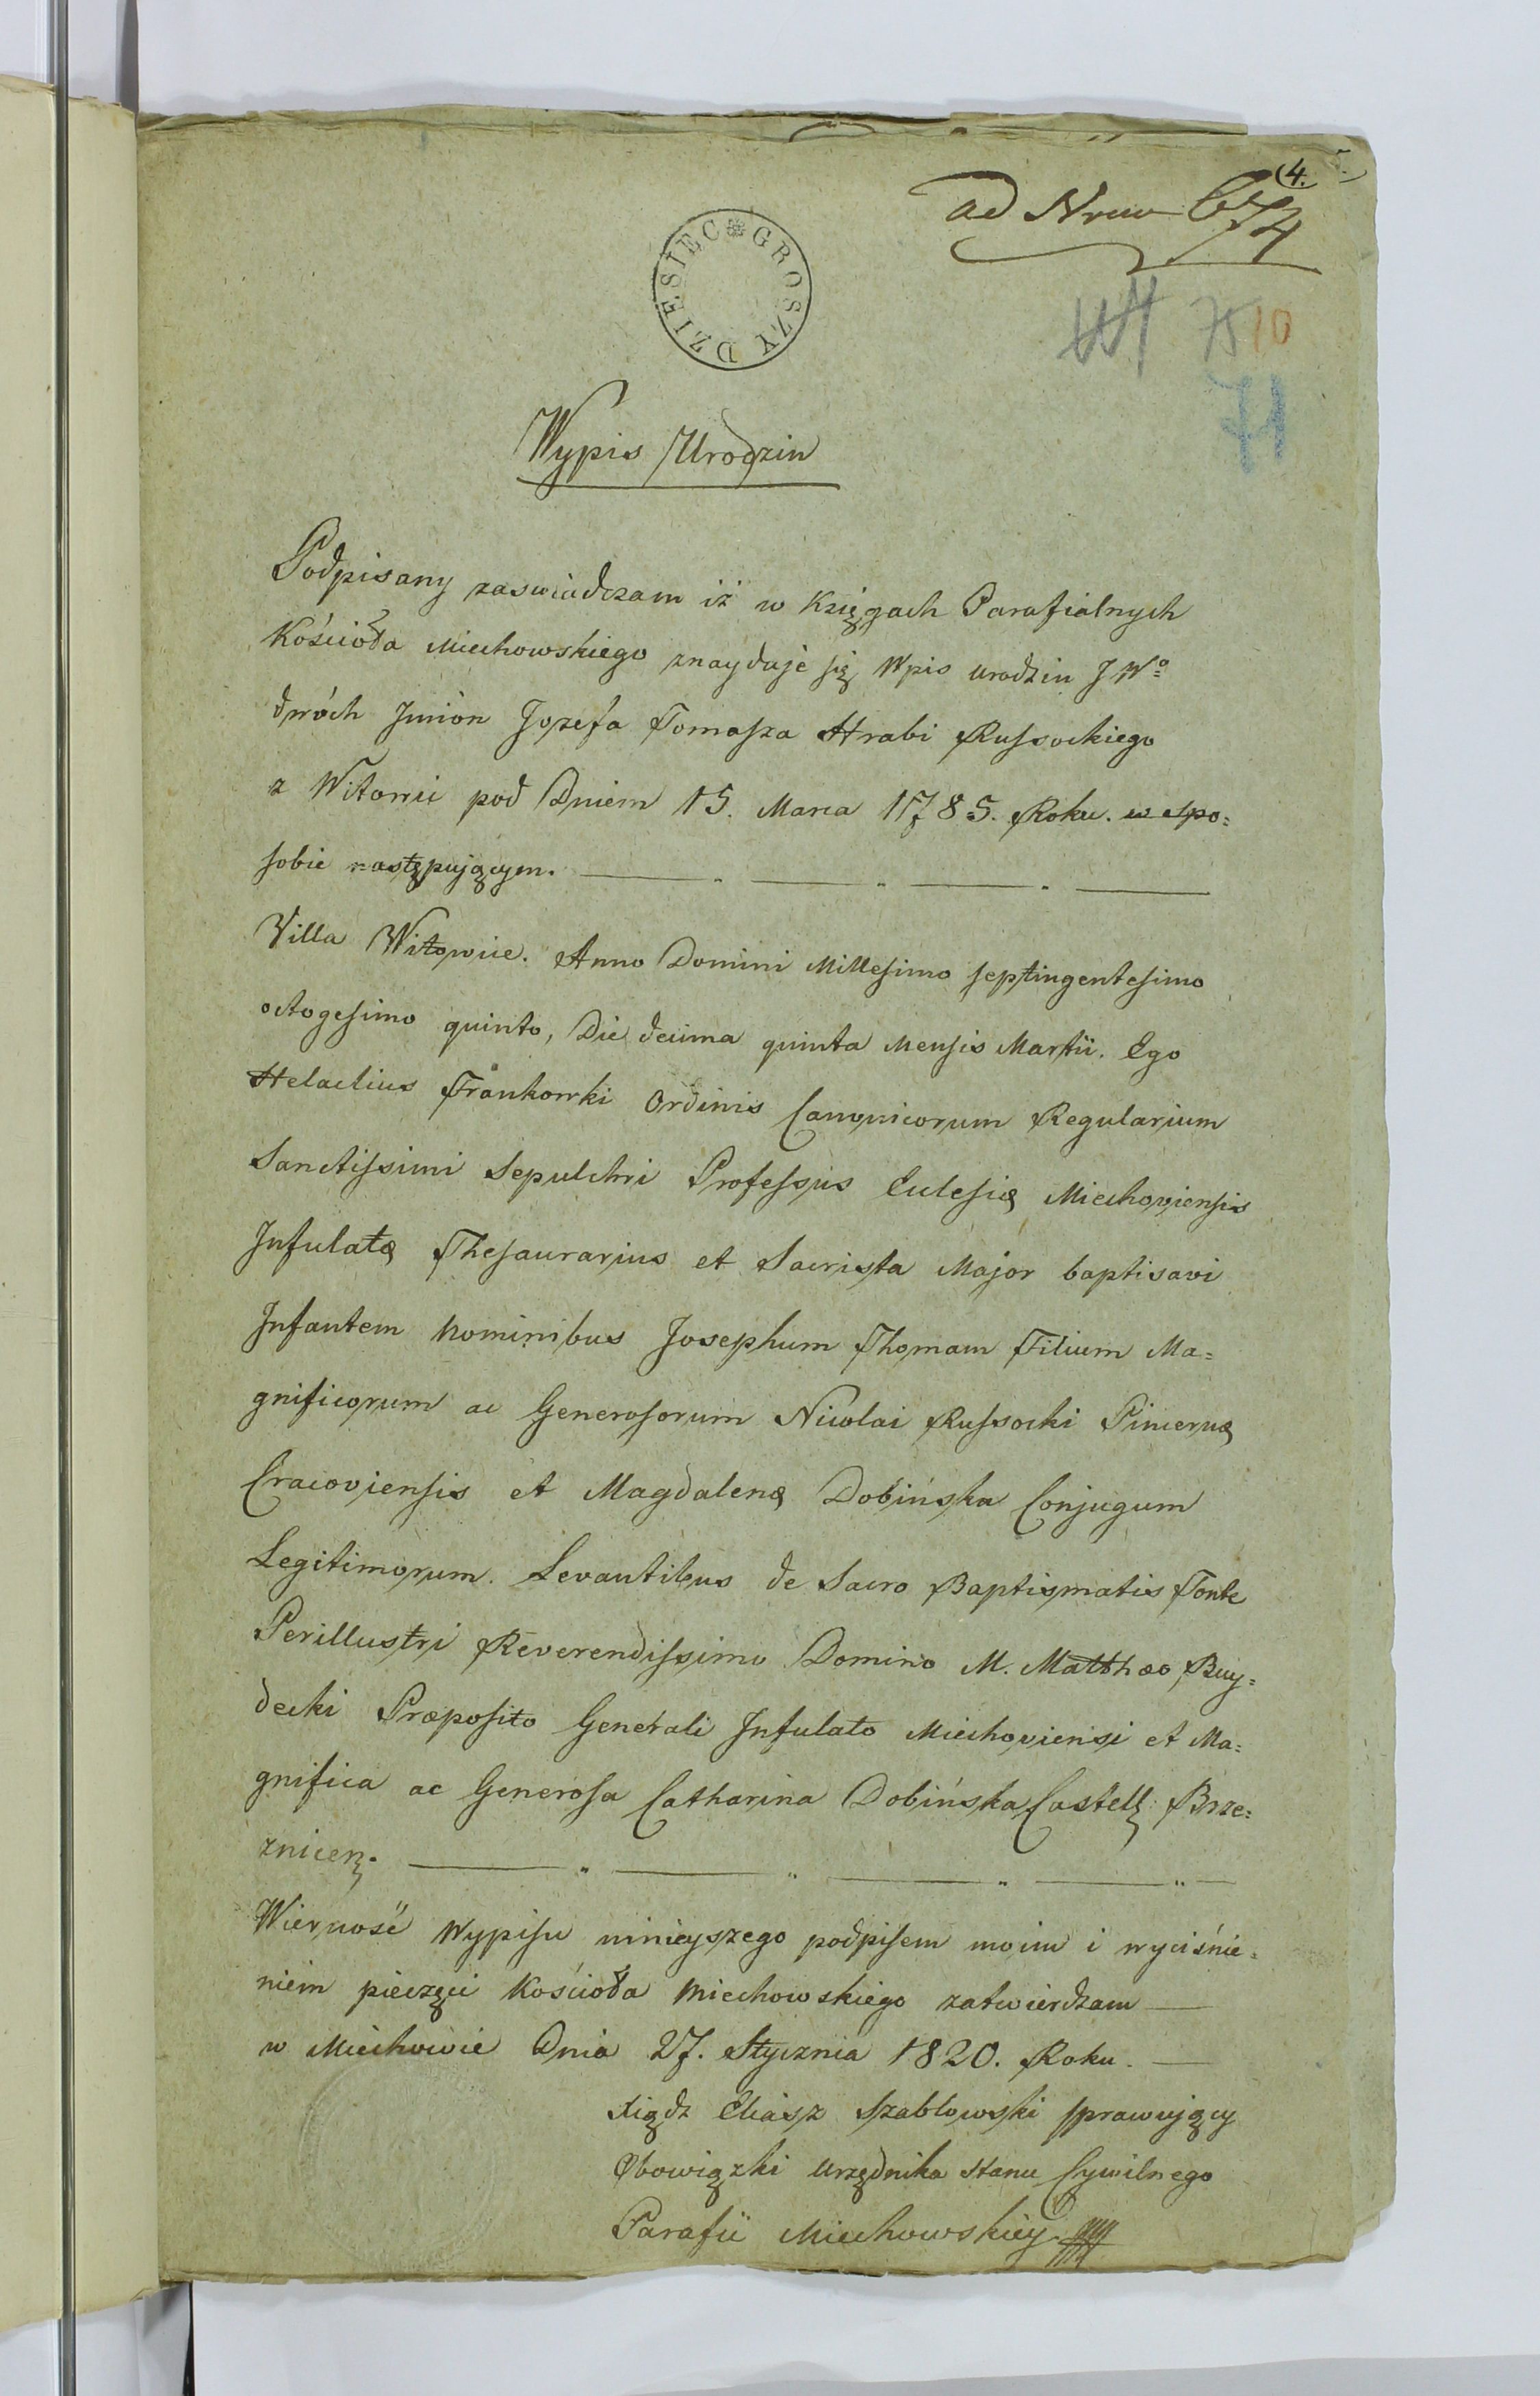 (4.
ad Nrum 674
DZIESIĘC GROSZY
75 10
71
Wypis Urodzin
Podpisany zaswiadczam iż w Księgach Parafialnych
Kościoła Miechowskiego znayduje się Wpis urodzin JWo
dwóch Jmión Jozefa Tomasza Hrabi Russockiego
z Witowic pod Dniem 15. Marca 1785. Roku. w spo=
sobie następującym.
Villa Witowice. Anno Domini Millesimo septingentesimo
octogesimo quinto, Die decima quinta Mensis Martii. Ego
Helaclius Frankowski Ordinis Canonicorum Regularium
Sanctissimi Sepulchri Professus Eclesię Miechoviensis
Infulatę Thesaurarius et Sacrista Major baptisavi
Infantem Nominibus Josephum Thomam Filium Ma=
gnificorum ac Generosorum Nicolai Russocki Pincernę
Cracoviensis et Magdalenę Dobińska Conjugum
Legitimorum. Levantibus de Sacro Baptismatis Fonte
Perillustri Reverendissimo Domino M. Matthæo Buy=
decki Præposito Generali Infulato Miechoviensi et Ma=
gnifica ac Generosa Catharina Dobińska Castell: Brze=
znicen.
Wierność Wypisu ninieyszego podpisem moim i wyciśnie=
niem pieczęci Kościoła Miechowskiego zatwierdzam
w Miechowie Dnia 27. Stycznia 1820. Roku.
Xiądz Eliasz Szablowski sprawujący
Obowiązki Urzędnika Stanu Cywilnego
Parafii Miechowskiey